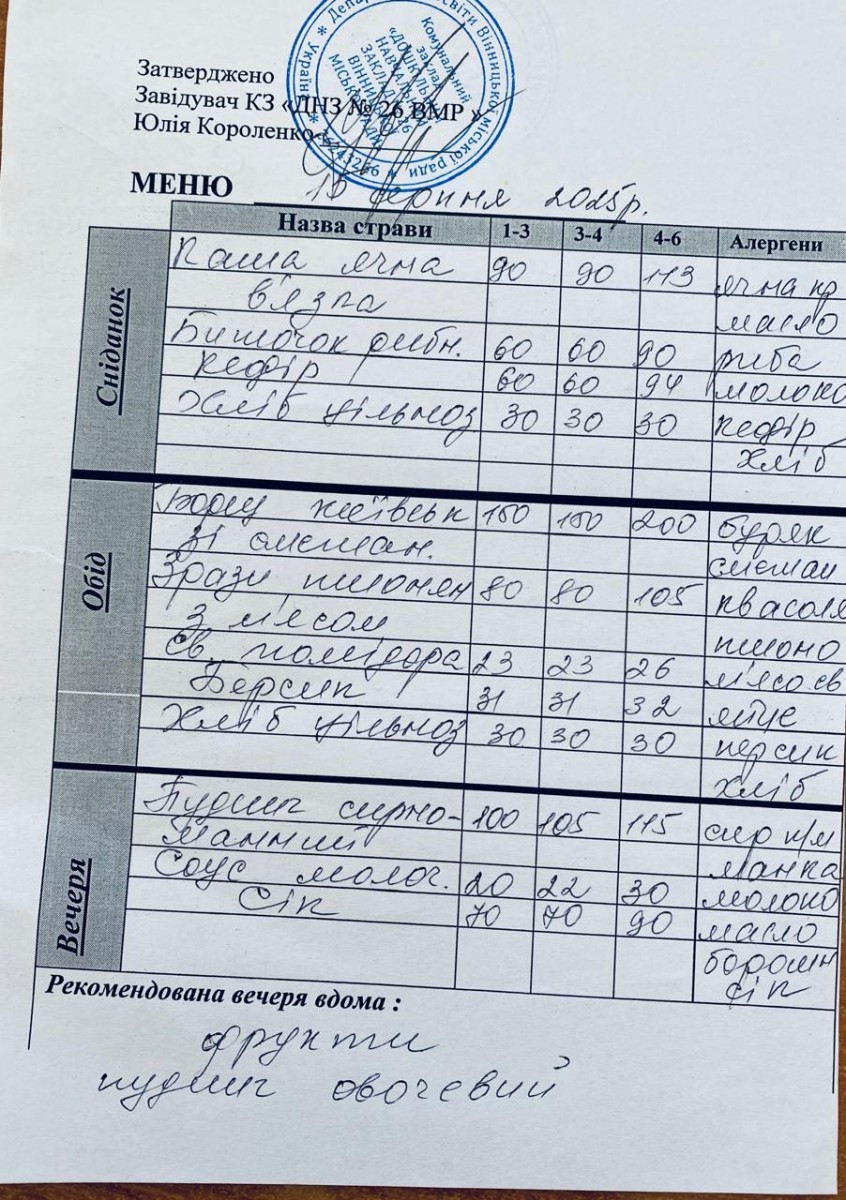 Україна * Департ освіти Вінницької міської ради * 26243266 *
Комунальний
заклад
«ДОШКІЛЬ
НАВЧАЛЬ
ЗАКЛАД
26
ВІННИ
МІСЬ
Затверджено
Завідувач КЗ «ДНЗ № 26 ВМР »
Юлія Короленко
МЕНЮ серпня 2025р.
Назва страви 1-3 3-4 4-6 Алергени
Сніданок
Каша ячна 90 90 113 ячна кр
в'язка масло
Биточок рибн. 60 60 90 риба
Кефір 60 60 94 молоко
Хліб цільноз 30 30 30 кефір
хліб
Обід
Борщ київськ 150 150 200 буряк
зі сметан. сметан
Зрази пшонян 80 80 105 квасоля
з м'ясом пшоно
Св. помідора 23 23 26 м'ясо св
Персик 31 31 32 яйце
Хліб цільноз 30 30 30 персик
хліб
Вечеря
Пудинг сирно- 100 105 115 сир к/м
манний манка
Соус молоч. 20 22 30 молоко
Сік 70 70 90 масло
борошн
сік
Рекомендована вечеря вдома :
фрукти
пудинг овочевий